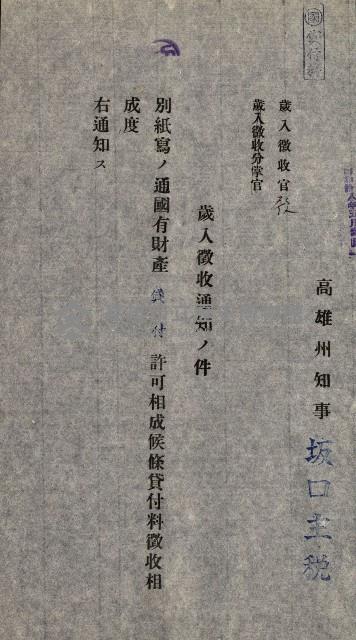 高雄州知事 坂口主税
歲入徵收官
歲入徵收分掌官
歲入徵收通知ノ件
別紙寫ノ通國有財產 貸付 許可相成候條貸付料徵收相
成度
右通知ス